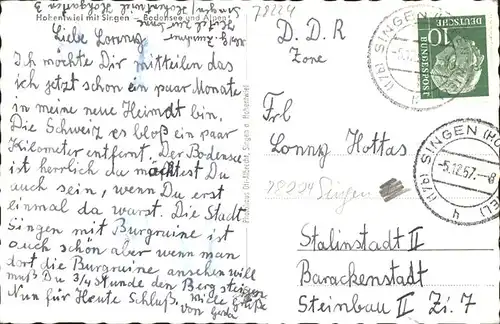 78224
Hohentwiel mit Singen - Bodensee und Alpen
Liebe Lonny
Ich möchte Dir mitteilen das
ich jetzt schon ein paar Monate
in meine neue Heimat bin.
Die Schweiz es bloß ein paar
Kilometer entfernt. Der Bodensee
ist herrlich du möchtest Du
auch sein, wenn Du erst
einmal da warst. Die Stadt
Singen mit Burgruine ist
auch schön aber wenn man
dort die Burgruine ansehen will
muß Du 3/4 stunde den Berg steigen
Nun für Heute Schluß, Viele Grüße
von Gerda
Photohaus Ott-Albrecht, Singen a. Hohentwiel
D. D. R
Zone
Frl
Lonny Hottas
78224 Singen
Stalinstadt II
Barackenstadt
Steinbau II Zi. 7
DEUTSCHE
BUNDESPOST
10
(17b) SINGEN
(17b) SINGEN (HOHENTWIEL)
-5.12.57.-8